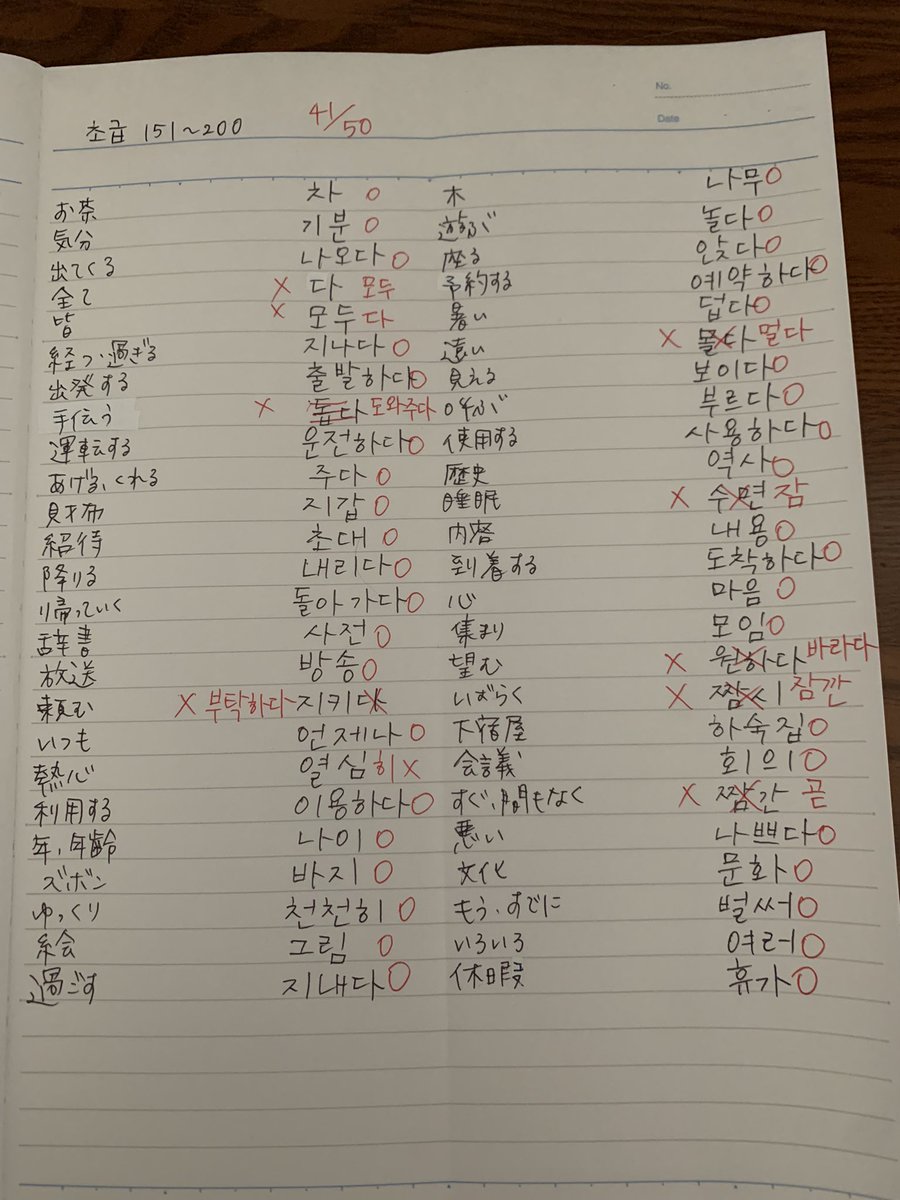 No.
Date
초급 151~200 41/50
お茶 차 O 木 나무 O
気分 기분 O 遊ぶ 놀다 O
出てくる 나오다 O 座る 앉다 O
全て × 다 모두 予約する 예약하다 O
皆 × 모두 다 暑い 덥다 O
経つ・過ぎる 지나다 O 遠い × 몰다 멀다
出発する 출발하다 O 見える 보이다 O
手伝う × 돕다 도와주다 呼ぶ 부르다 O
運転する 운전하다 O 使用する 사용하다 O
あげる、くれる 주다 O 歴史 역사 O
財布 지갑 O 睡眠 × 수면 잠
紹待 초대 O 内容 내용 O
降りる 내리다 O 到着する 도착하다 O
帰っていく 돌아가다 O 心 마음 O
辞書 사전 O 集まり 모임 O
放送 방송 O 望む × 원하다 바라다
頼む × 부탁하다 지키다 しばらく × 잠깐
いつも 언제나 O 下宿屋 하숙집 O
熱心 열심히 × 会議 회의 O
利用する 이용하다 O すぐ、間もなく × 짬간 곧
年、年齢 나이 O 悪い 나쁘다 O
ズボン 바지 O 文化 문화 O
ゆっくり 천천히 O もう、すでに 벌써 O
絵 그림 O いろいろ 여러 O
過ごす 지내다 O 休暇 휴가 O